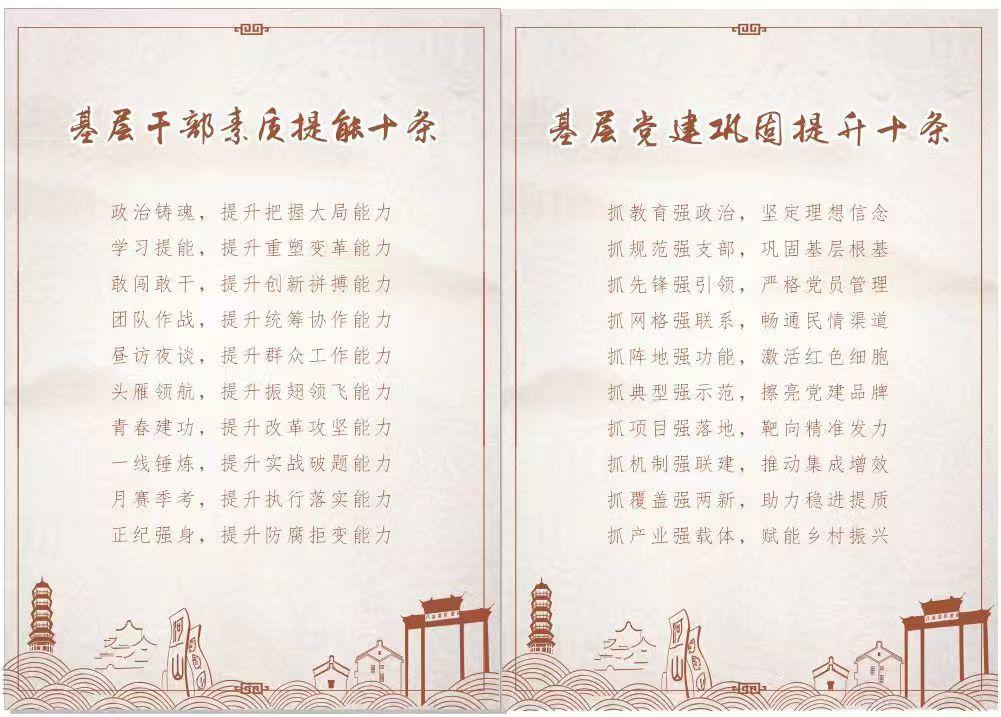 基层干部素质提能十条
政治铸魂，提升把握大局能力
学习提能，提升重塑变革能力
敢闯敢干，提升创新拼搏能力
团队作战，提升统筹协作能力
昼访夜谈，提升群众工作能力
头雁领航，提升振翅领飞能力
青春建功，提升改革攻坚能力
一线锤炼，提升实战破题能力
月赛季考，提升执行落实能力
正纪强身，提升防腐拒变能力
基层党建巩固提升十条
抓教育强政治，坚定理想信念
抓规范强支部，巩固基层根基
抓先锋强引领，严格党员管理
抓网格强联系，畅通民情渠道
抓阵地强功能，激活红色细胞
抓典型强示范，擦亮党建品牌
抓项目强落地，靶向精准发力
抓机制强联建，推动集成增效
抓覆盖强两新，助力稳进提质
抓产业强载体，赋能乡村振兴